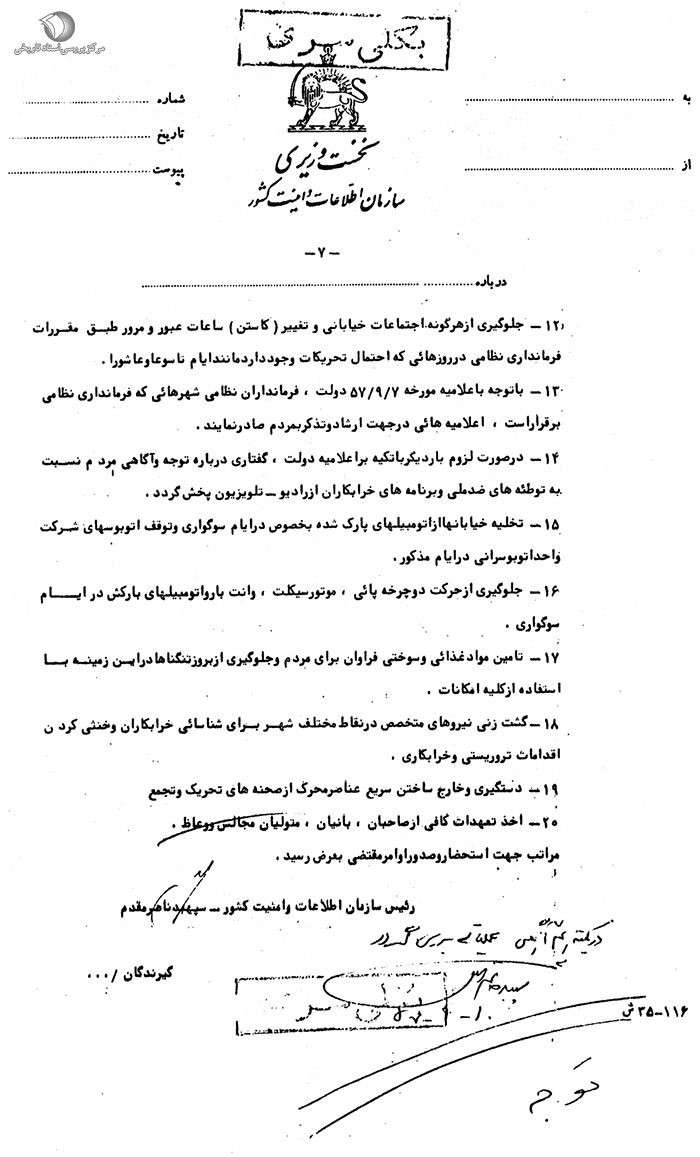 مرکز بررسی اسناد تاریخی
بکلی سری
به
شماره
تاریخ
از
پیوست
نخست وزیری
سازمان اطلاعات و امنیت کشور
-۷-
درباره
۱۲- جلوگیری از هرگونه اجتماعات خیابانی و تغییر (کاستن) ساعات عبور و مرور طبق مقررات
فرمانداری نظامی در روزهائی که احتمال تحریکات وجود دارد مانند ایام تاسوعا و عاشورا .
۱۳- باتوجه باعلامیه مورخه ۵۷/۹/۷ دولت ، فرمانداران نظامی شهرهائی که فرمانداری نظامی
برقرار است ، اعلامیه هائی درجهت ارشاد و تذکر بمردم صادر نمایند .
۱۴- درصورت لزوم بار دیگر باتکیه بر اعلامیه دولت ، گفتاری درباره توجه و آگاهی مردم نسبت
به توطئه های ضد ملی و برنامه های خرابکاران از رادیو - تلویزیون پخش گردد .
۱۵- تخلیه خیابانها از اتومبیلهای پارک شده بخصوص در ایام سوگواری و توقف اتوبوسهای شرکت
واحد اتوبوسرانی در ایام مذکور .
۱۶- جلوگیری از حرکت دوچرخه پائی ، موتورسیکلت ، وانت بار و اتومبیلهای بارکش در ایــــام
سوگواری .
۱۷- تامین مواد غذائی و سوختی فراوان برای مردم و جلوگیری از بروز تنگناها در این زمینه بــا
استفاده از کلیه امکانات .
۱۸- گشت زنی نیروهای متخصص در نقاط مختلف شهر برای شناسائی خرابکاران و خنثی کردن
اقدامات تروریستی و خرابکاری .
۱۹- دستگیری و خارج ساختن سریع عناصر محرک از صحنه های تحریک و تجمع
۲۰- اخذ تعهدات کافی از صاحبان ، بانیان ، متولیان مجالس و وعاظ .
مراتب جهت استحضار و صدور اوامر مقتضی بعرض رسید .
رئیس سازمان اطلاعات و امنیت کشور - سپهبد ناصر مقدم
در کمیته عملیاتی بررسی گردد
گیرندگان /۰۰۰
۳۵-۱۱۶ ش